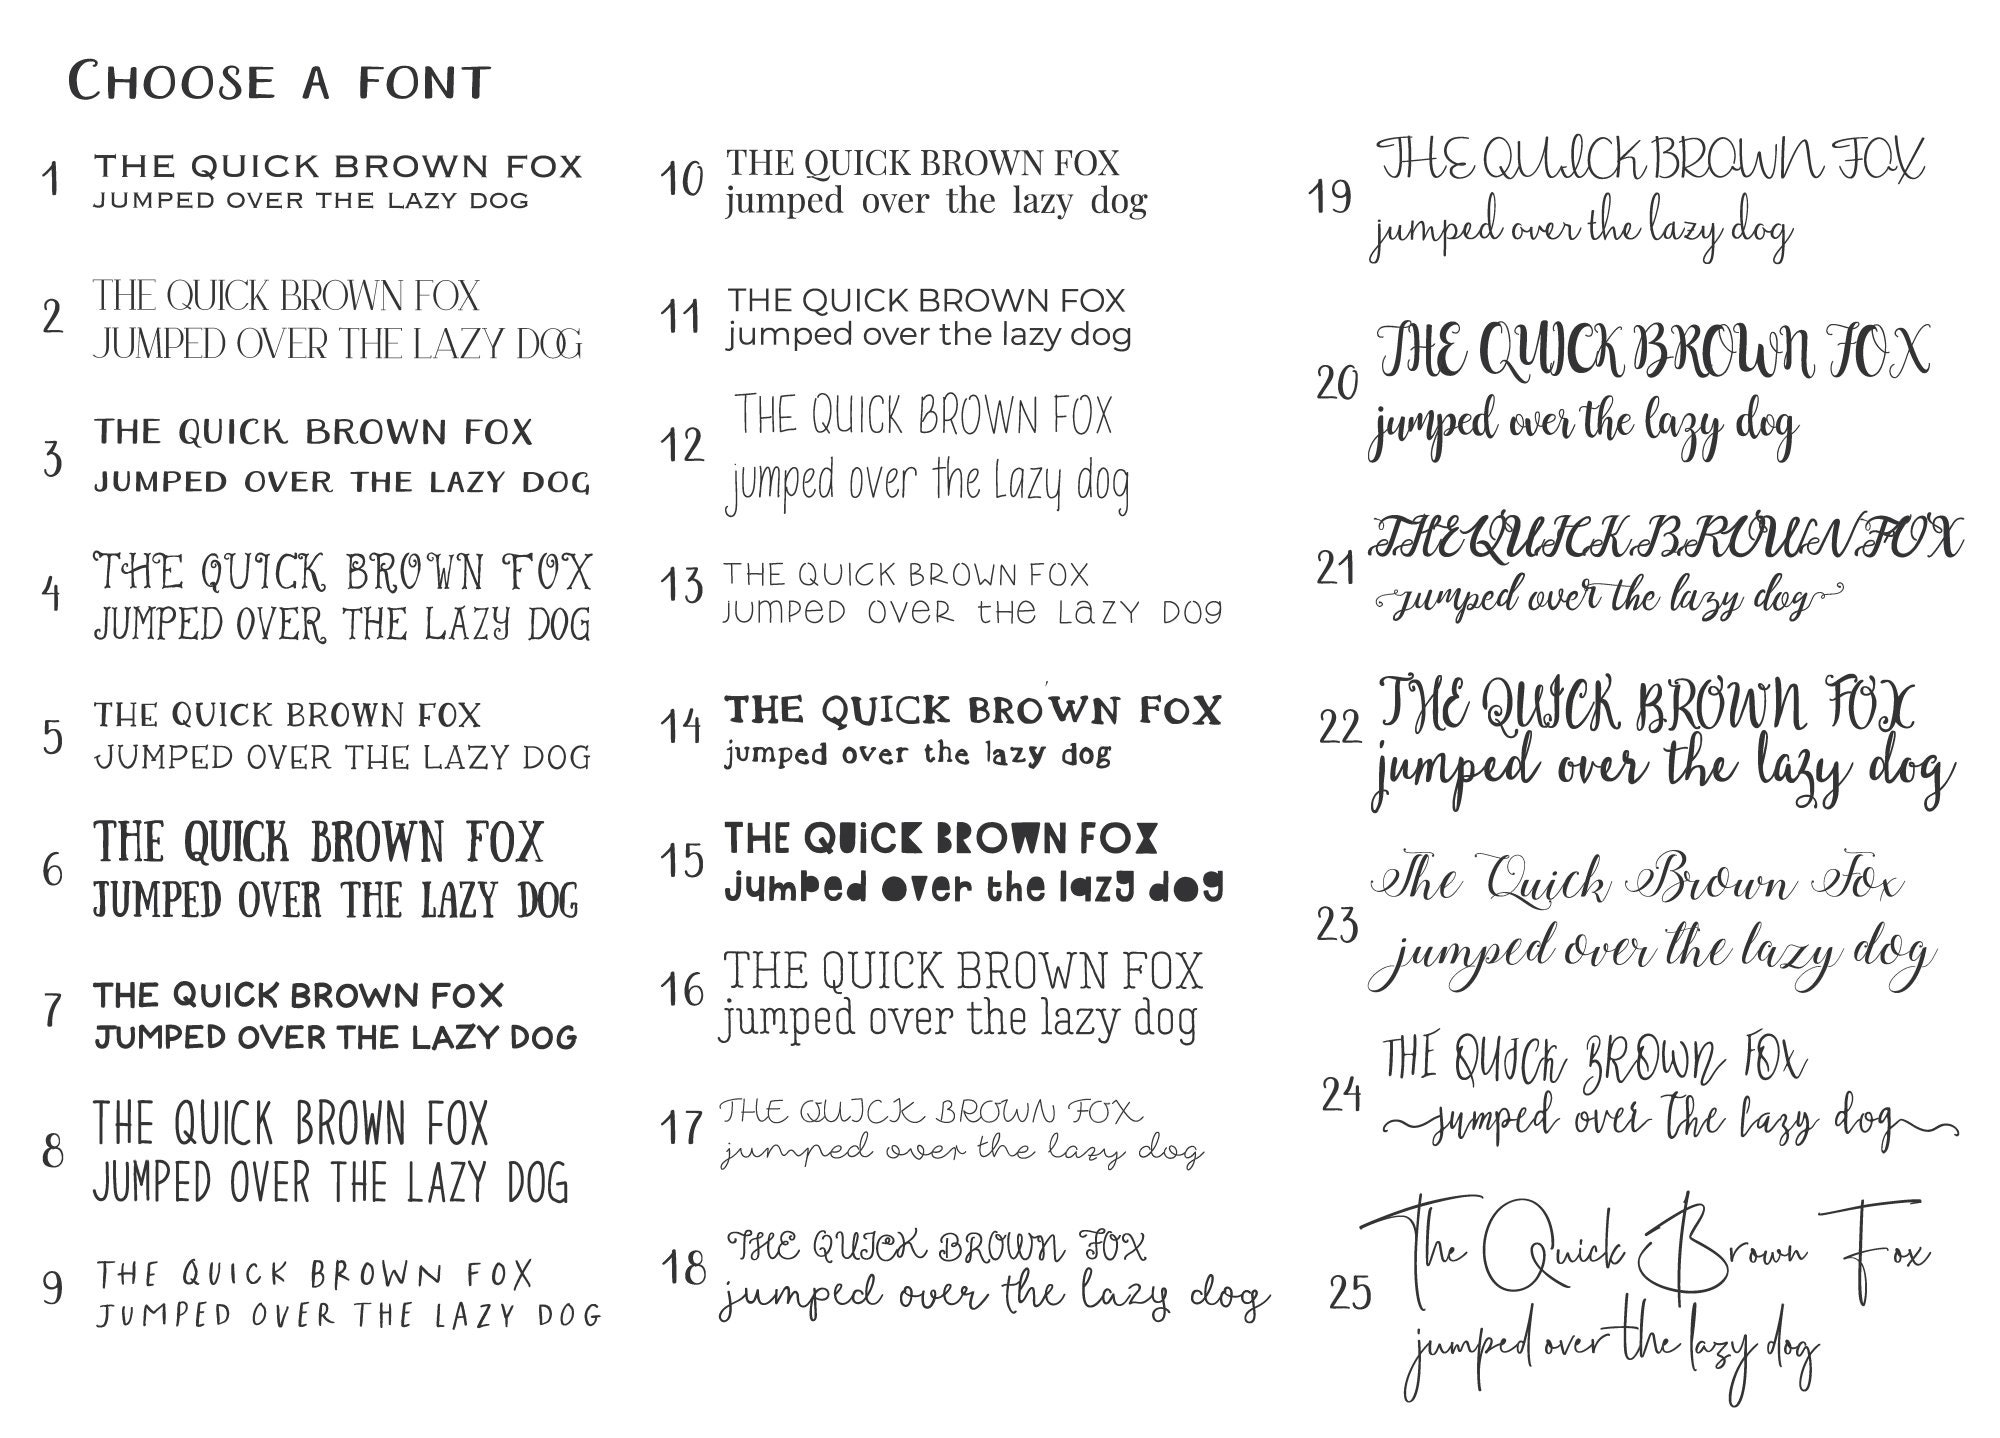 CHOOSE A FONT
1 THE QUICK BROWN FOX
JUMPED OVER THE LAZY DOG
2 THE QUICK BROWN FOX
JUMPED OVER THE LAZY DOG
3 THE QUICK BROWN FOX
JUMPED OVER THE LAZY DOG
4 THE QUICK BROWN FOX
JUMPED OVER THE LAZY DOG
5 THE QUICK BROWN FOX
JUMPED OVER THE LAZY DOG
6 THE QUICK BROWN FOX
JUMPED OVER THE LAZY DOG
7 THE QUICK BROWN FOX
JUMPED OVER THE LAZY DOG
8 THE QUICK BROWN FOX
JUMPED OVER THE LAZY DOG
9 THE QUICK BROWN FOX
JUMPED OVER THE LAZY DOG
10 THE QUICK BROWN FOX
jumped over the lazy dog
11 THE QUICK BROWN FOX
jumped over the lazy dog
12 THE QUICK BROWN FOX
jumped over the lazy dog
13 THE QUICK BROWN FOX
jumped over the lazy dog
14 THE QUICK BROWN FOX
jumped over the lazy dog
15 THE QUiCK BROWN FOX
jumped over the lazy dog
16 THE QUICK BROWN FOX
jumped over the lazy dog
17 THE QUICK BROWN FOX
jumped over the lazy dog
18 THE QUICK BROWN FOX
jumped over the lazy dog
19 THE QUICK BROWN FOX
jumped over the lazy dog
20 THE QUICK BROWN FOX
jumped over the lazy dog
21 THE QUICK BROWN FOX
jumped over the lazy dog
22 THE QUICK BROWN FOX
jumped over the lazy dog
23 The Quick Brown Fox
jumped over the lazy dog
24 THE QUICK BROWN FOX
jumped over the lazy dog
25 The Quick Brown Fox
jumped over the lazy dog